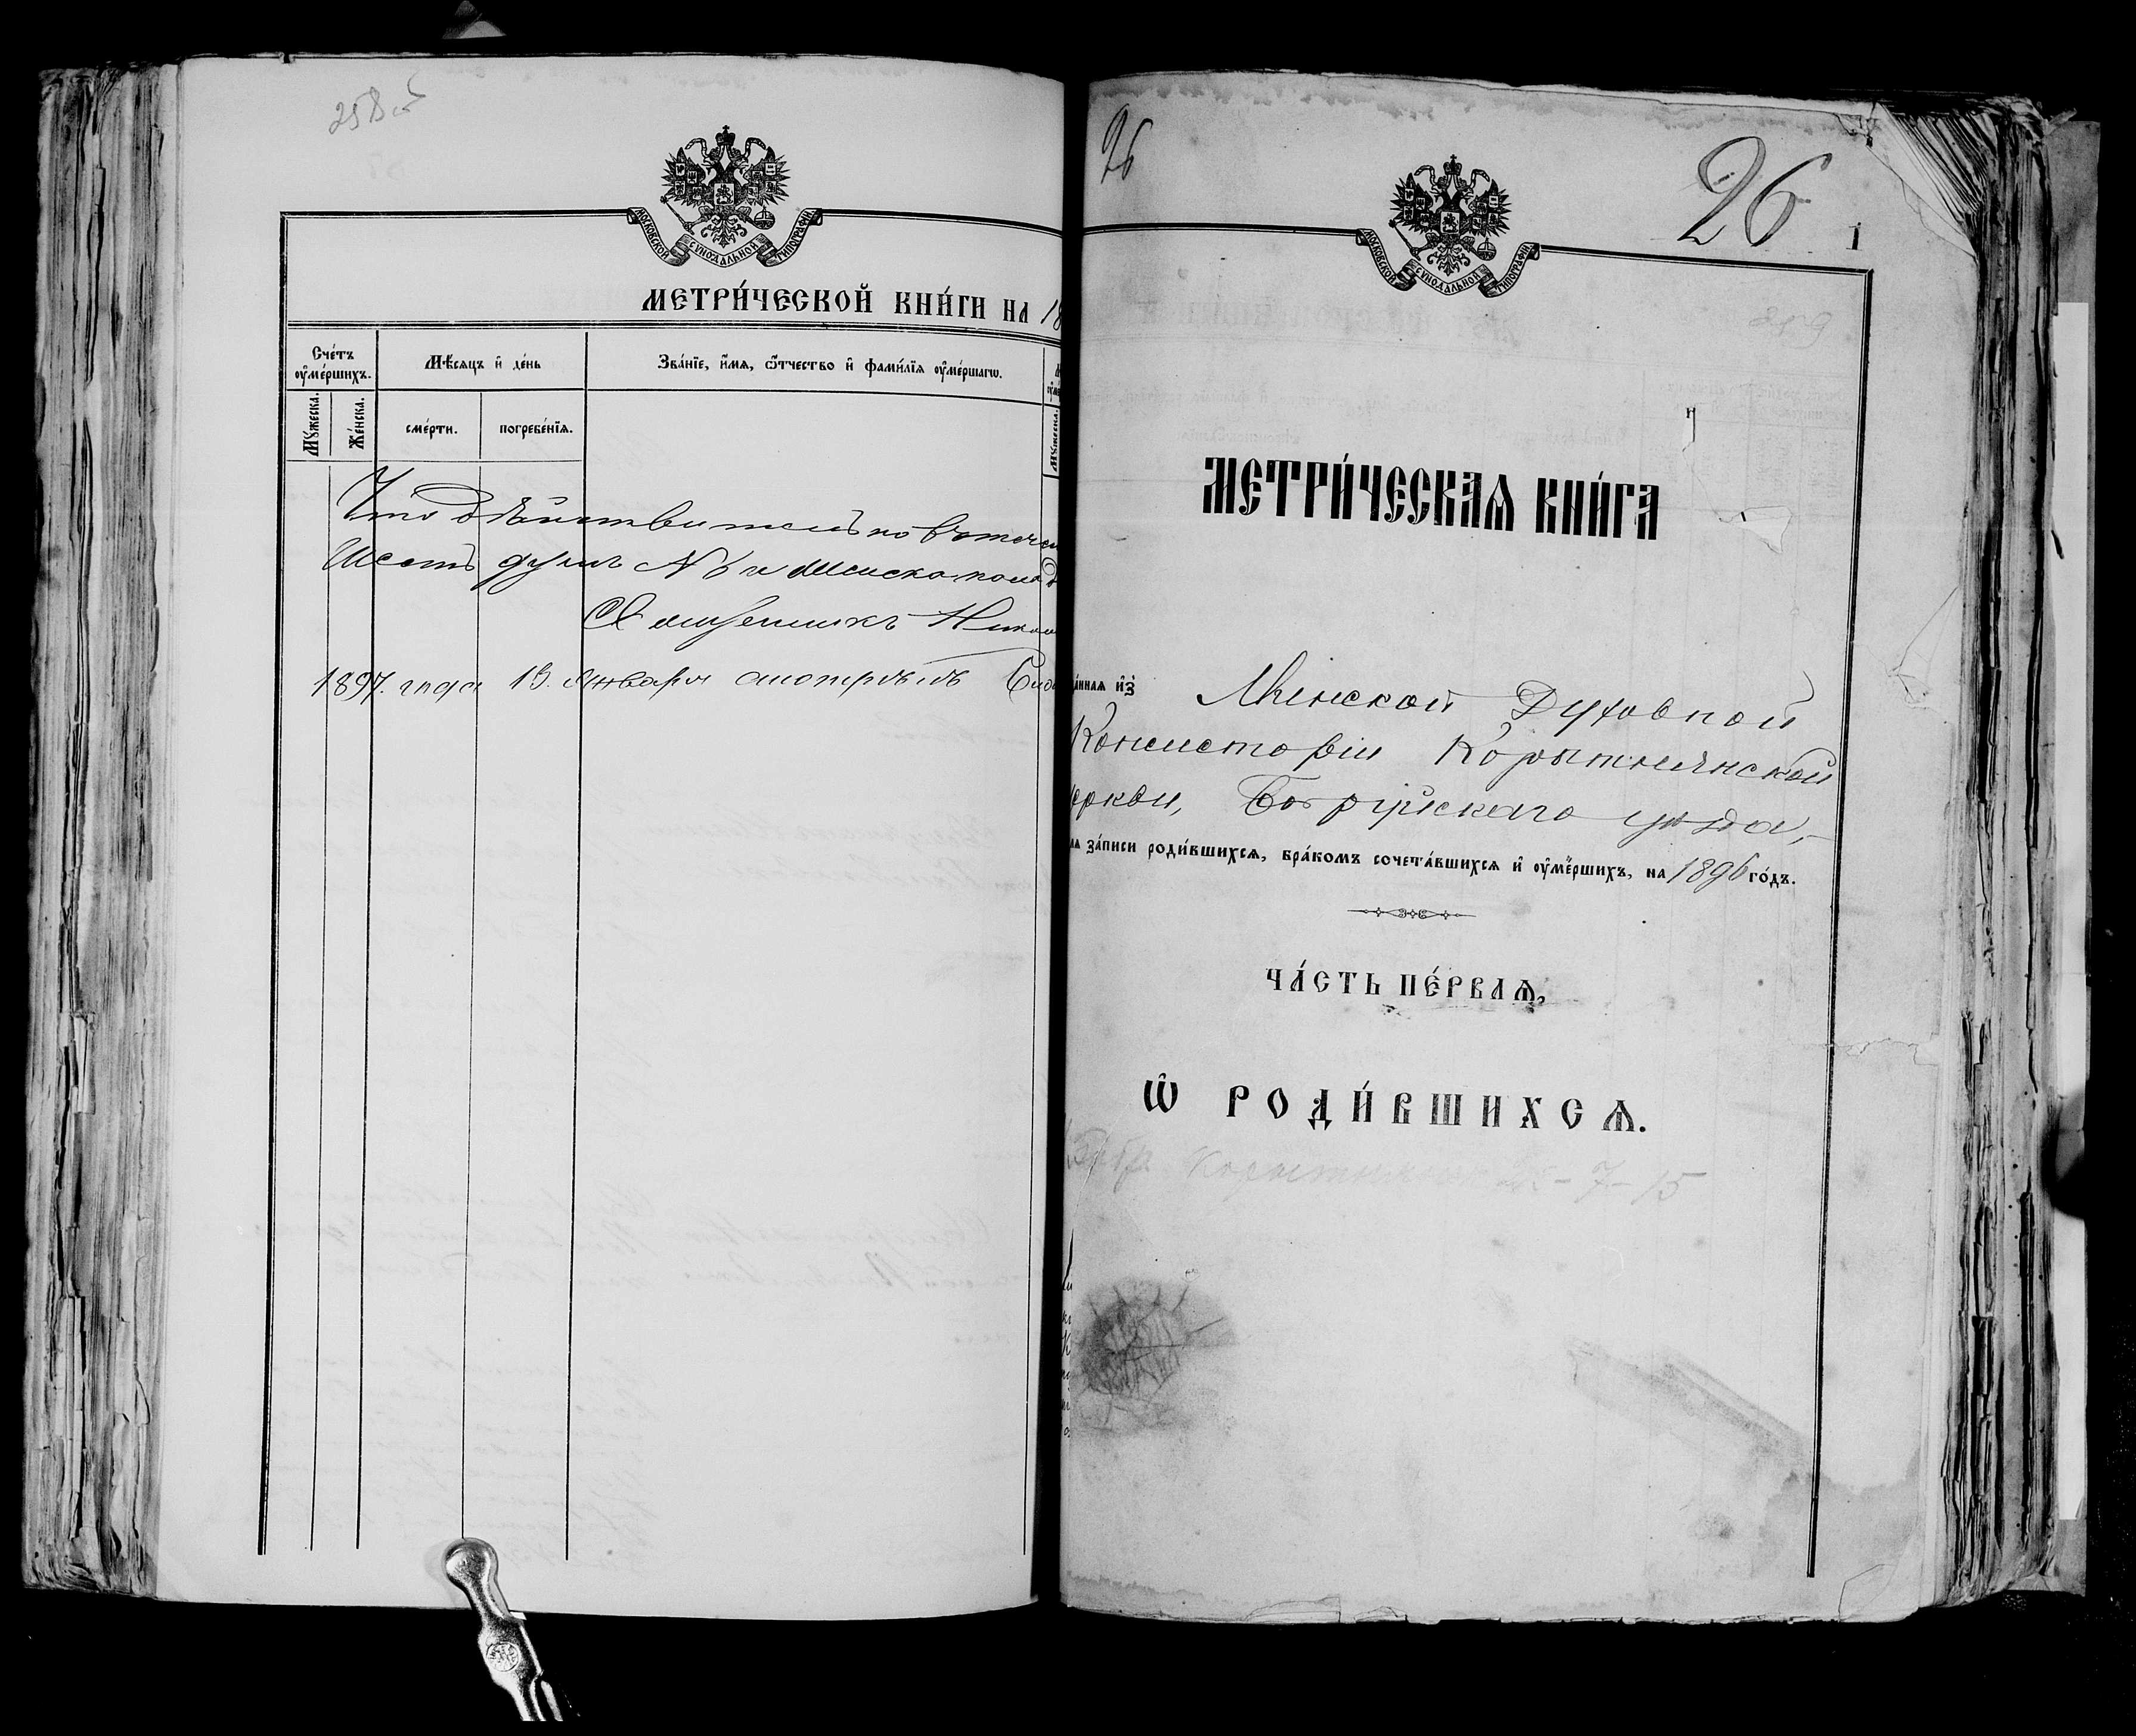 258 об
МОСКОВСКОЙ СѴНОДАЛЬНОЙ ТИПОГРАФІИ
МЕТРИ́ЧЕСКОЙ КНИ́ГИ НА 18
Сче́тъ ᲂу҆ме́ршихъ.
Мѣ́сяцъ и҆ де́нь
Зва́нїе, и҆́мѧ, ѻ҆́тчество и҆ фами́лїѧ ᲂу҆ме́ршагѡ.
Му́жеска.
Же́нска.
сме́рти.
погребе́нїѧ.
Му́жеска.
Что действительно въ тече
Шесть душъ № 6 и женска пола
Священникъ Никол
1897. года 19. Января смотрѣлъ
26
26
1
МОСКОВСКОЙ СѴНОДАЛЬНОЙ ТИПОГРАФІИ
259
МЕТРИ́ЧЕСКАѦ КНИ́ГА
а́ннаѧ и҆з̾ Минской Духовной
Консисторіи Корытнянской
еркви, Бобруйскаго уѣзда,
лѧ за́писи роди́вшихсѧ, бра́комъ сочета́вшихсѧ и҆ ᲂу҆ме́ршихъ, на 1896 го́дъ.
ЧА́СТЬ ПЕ́РВАѦ,
Ѽ РОДИ́ВШИХСѦ.
Корытнянск - 7 - 15